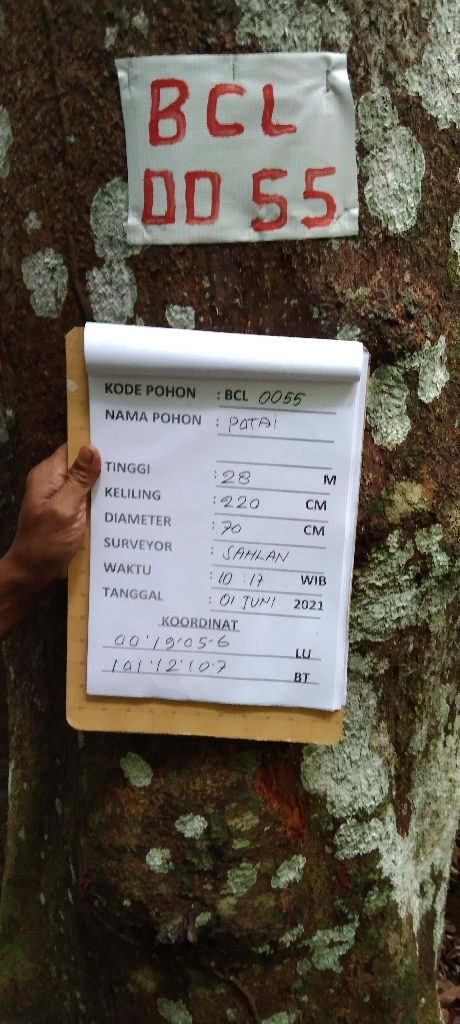 BCL
0055
KODE POHON : BCL 0055
NAMA POHON : PATAI
TINGGI : 28 M
KELILING : 220 CM
DIAMETER : 70 CM
SURVEYOR : SAHLAN
WAKTU : 10 : 17 WIB
TANGGAL : 01 JUNI 2021
KOORDINAT
00°19'05·6 LU
101°12'10·7 BT